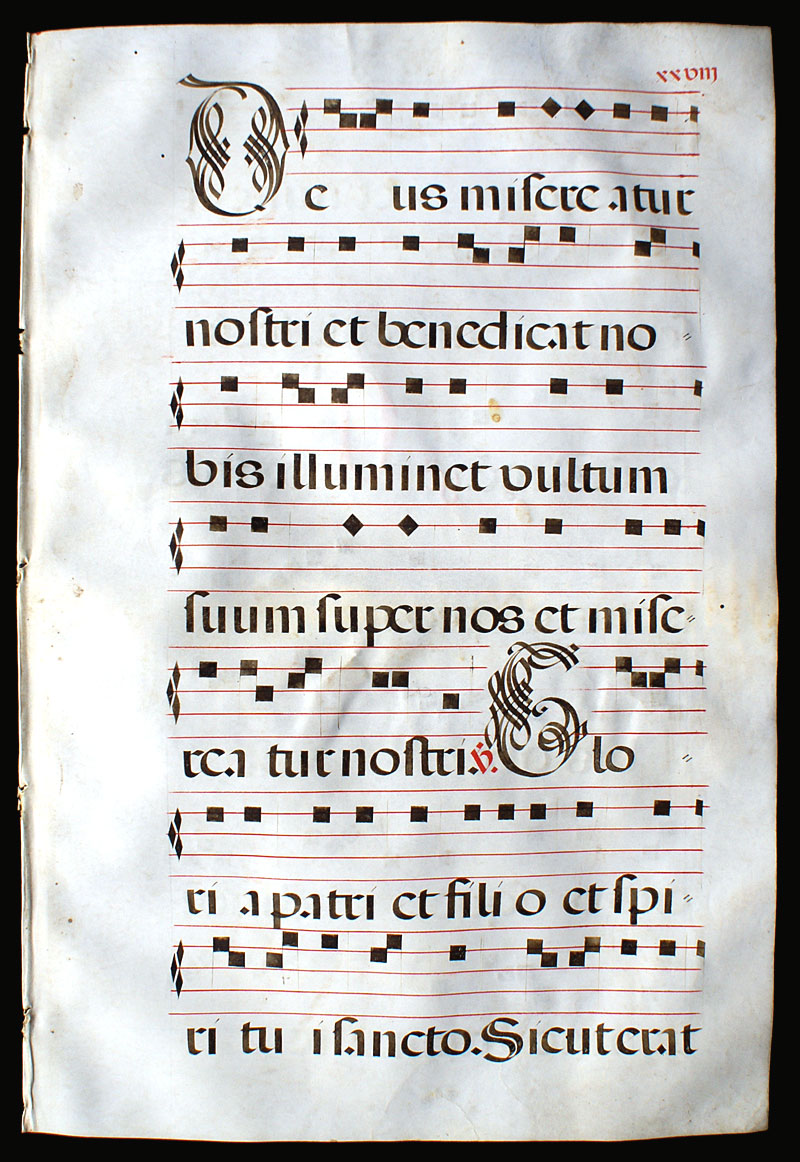 xxviij
De us misereatur
nostri et benedicat no〃
bis illuminet vultum
suum super nos et mise〃
rea tur nostri. ℣. Glo〃
ri a patri et filio et spi〃
ri tu i sancto. Sicut erat